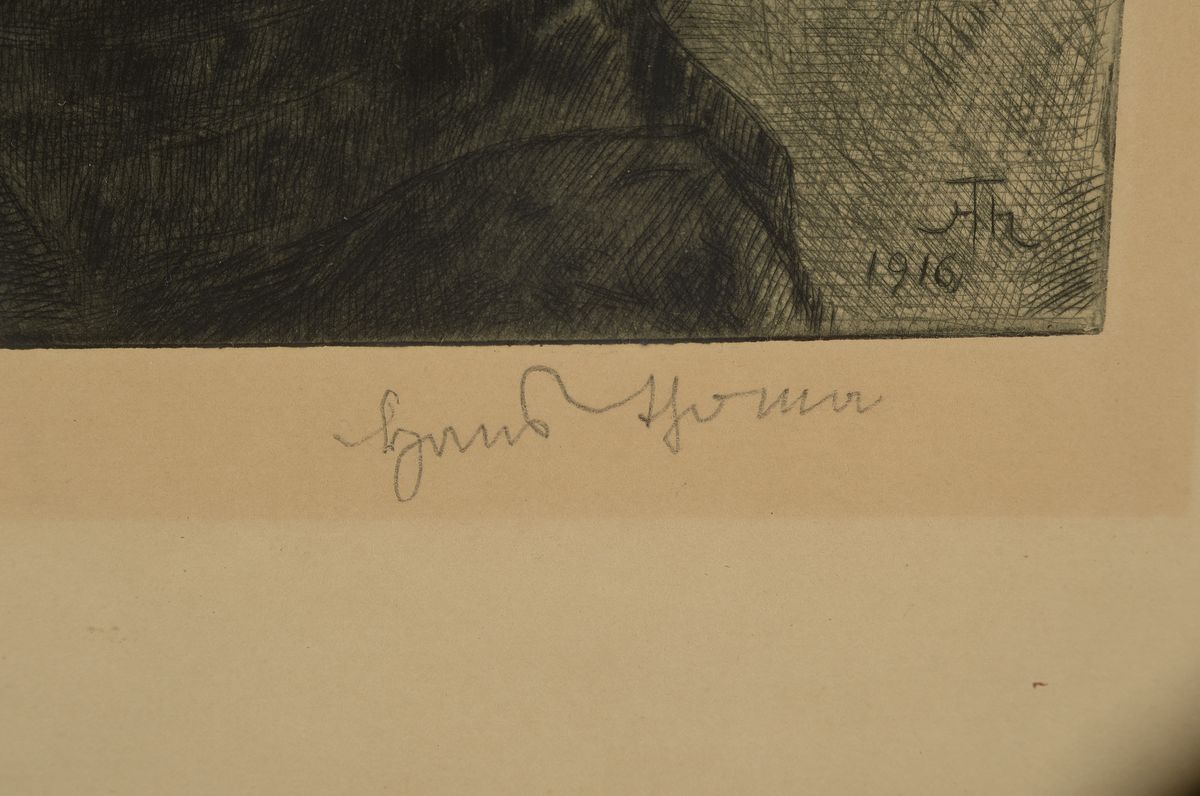 HTh
1916
Hans Thoma